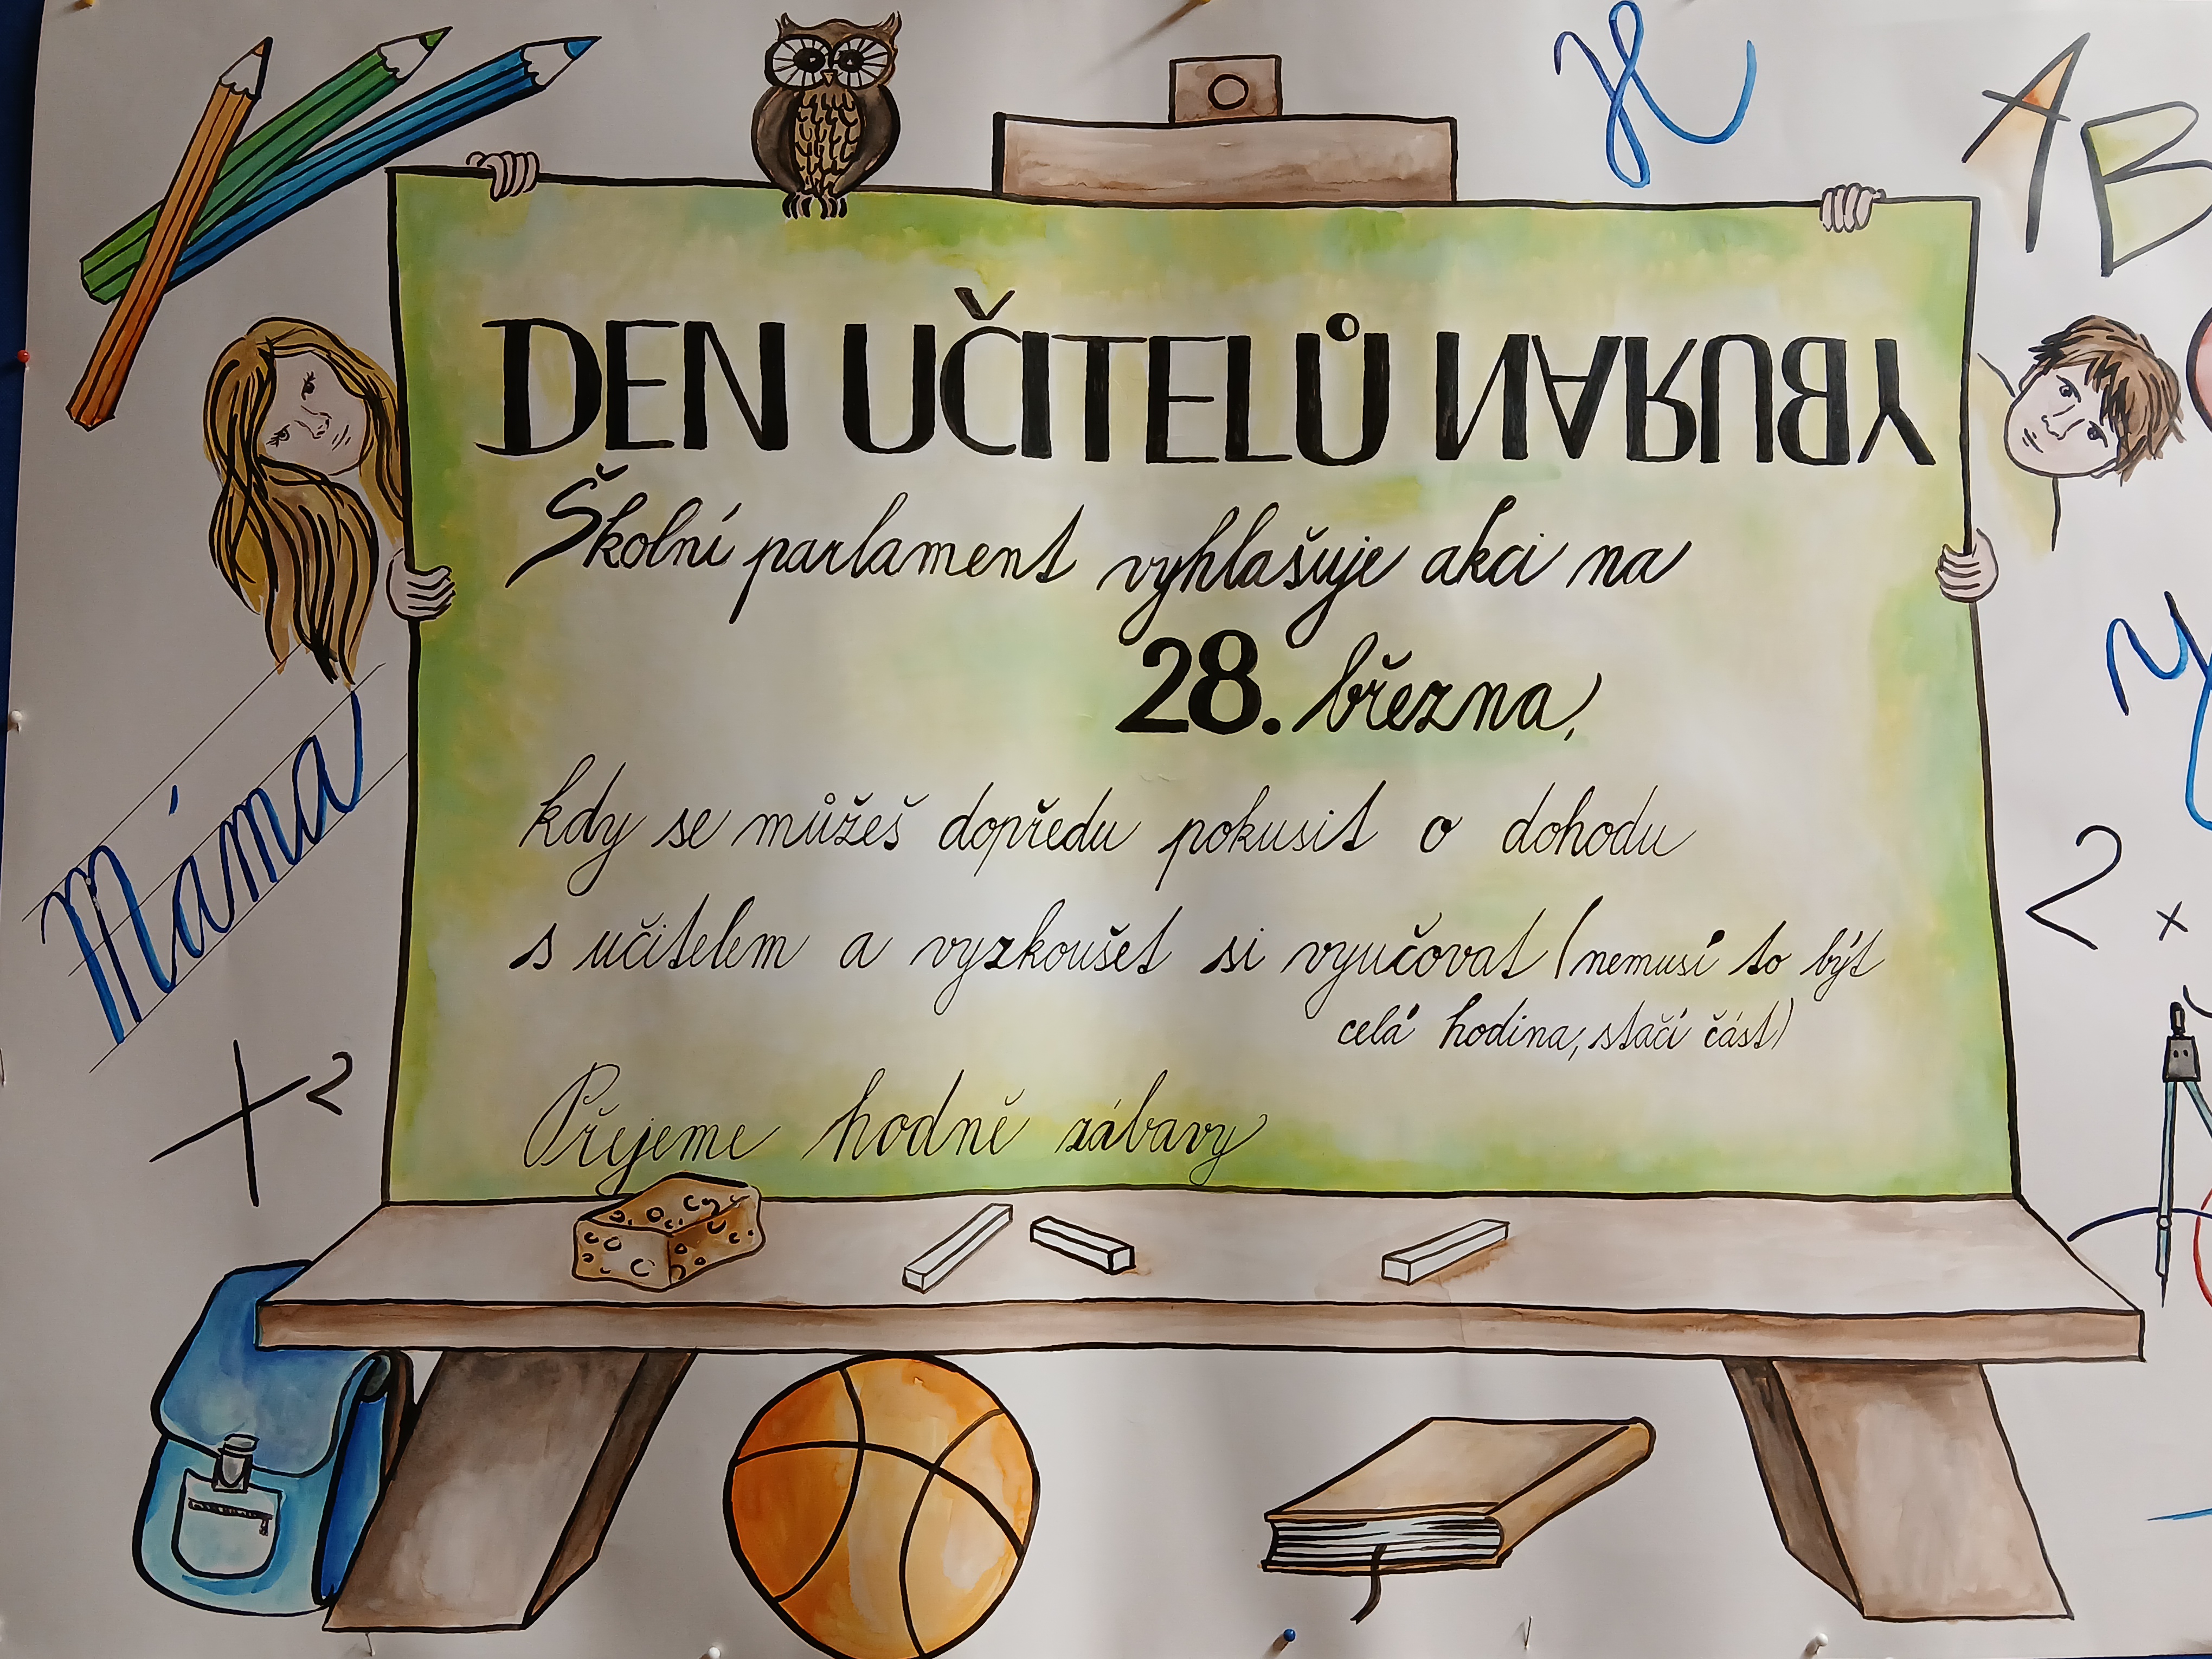 H
A B
DEN UČITELŮ NARUBY
Školní parlament vyhlašuje akci na
28. března,
kdy se můžeš dopředu pokusit o dohodu
s učitelem a vyzkoušet si vyučovat (nemusí to být
celá hodina, stačí část)
Přejeme hodně zábavy
Máma
+2
y
2 x